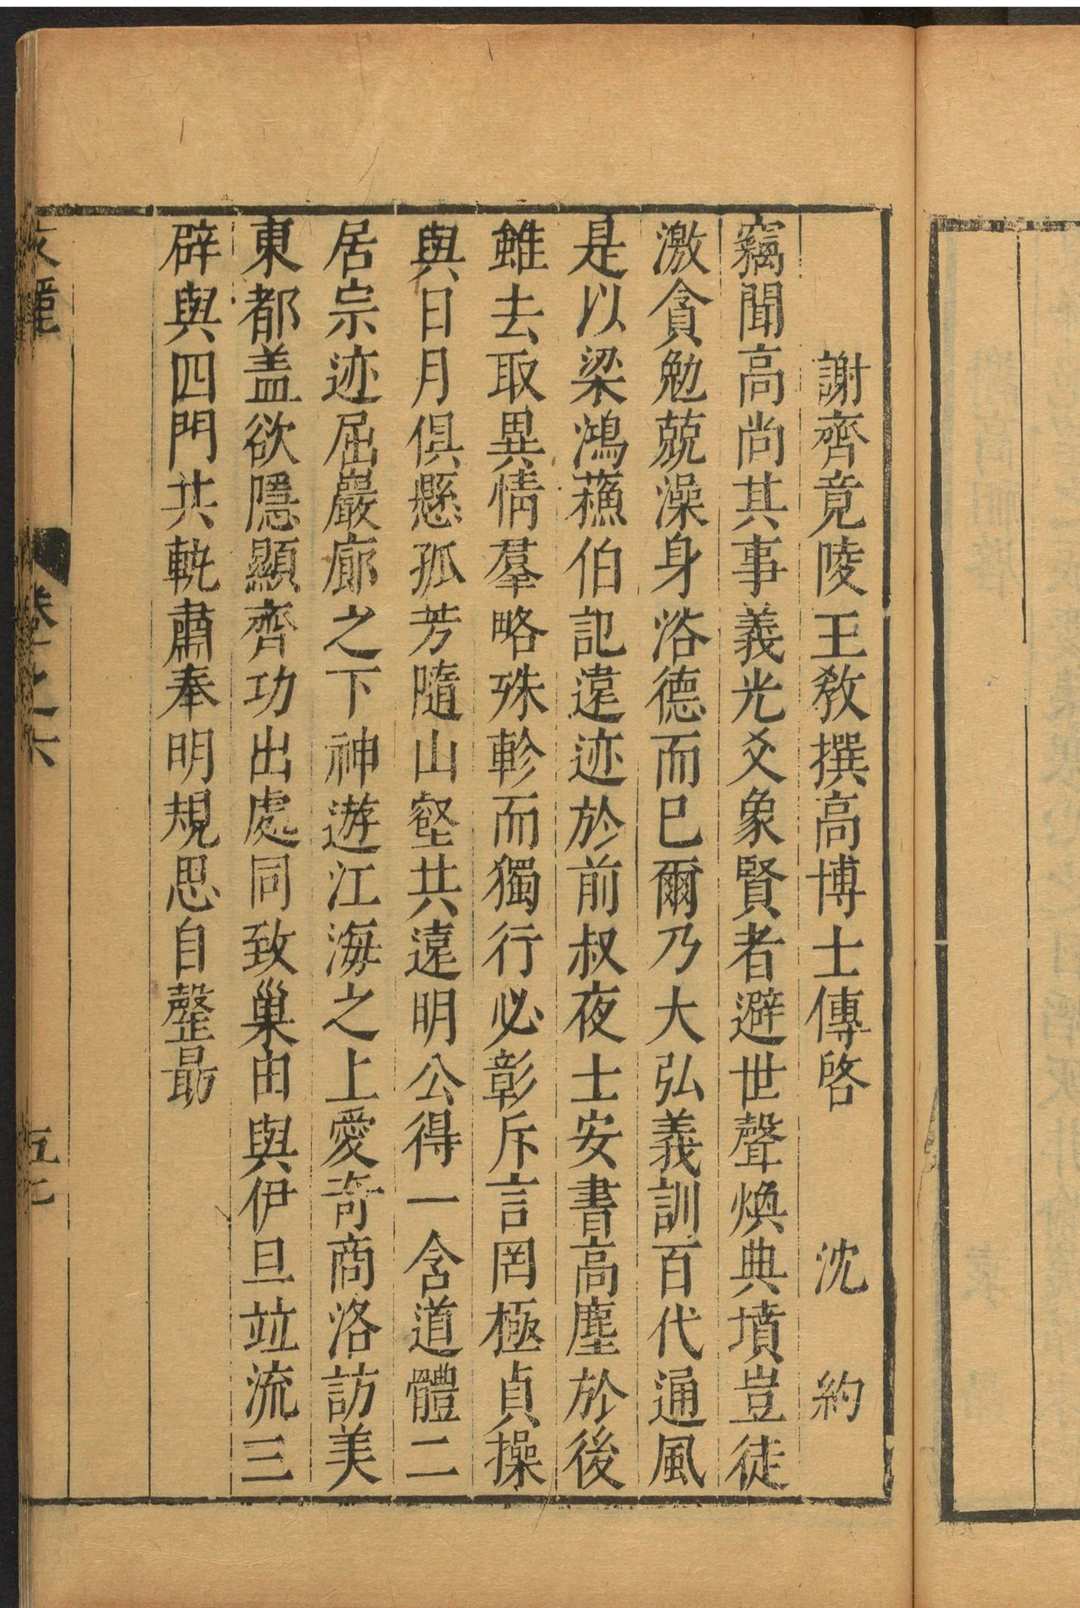 謝齊竟陵王敎撰高博士傳啓　沈約
竊聞高尚其事義光爻象賢者避世聲煥典墳豈徒
激貪勉兢澡身浴德而已爾乃大弘義訓百代通風
是以梁鴻蘓伯記違迹於前叔夜士安書高塵於後
雖去取異情羣略殊軫而獨行必彰斥言罔極貞操
與日月俱懸孤芳隨山壑共遠明公得一含道體二
居宗迹屈巖廊之下神遊江海之上愛奇商洛訪美
東都盖欲隱顯齊功出處同致巢由與伊旦竝流三
辟與四門共軌肅奉明規思自罄最
卷十之六